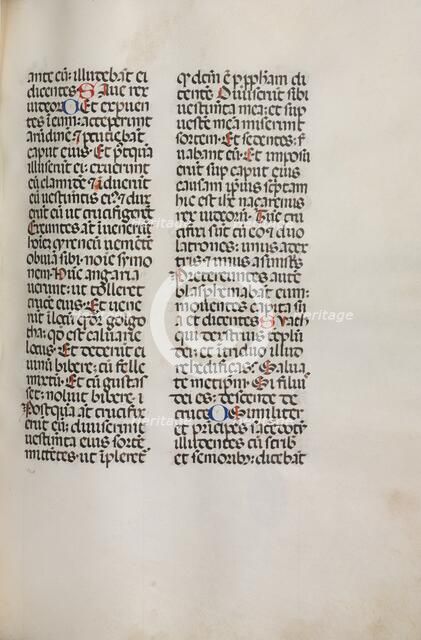 ante eū: illudebāt ei
dicentes: S Aue rex
iudeoꝝ. O Et expuen
tes ī eum: acceperunt
arūdinē ⁊ ꝑcutiebāt
caput eius. Et postqua
illuserūt ei: exuerūt
eū clamide: ⁊ īduerūt
eū uestimētis ei⁹ ⁊ dux
erūt eū ut crucifigerēt
Exeuntes aūt īuenerūt
hoīez cyreneū uenientē
obuiā sibi: noīe symo
nem. hunc angaria
uerunt: ut tolleret
crucē eius. Et uene
rūt ī locū: qui dr̄ golgo
tha: qd̄ est caluarie
locus. Et dederūt ei
uinū bibere: cū felle
mixtū. Et cū gustas
set: noluit bibere:
Postquā aūt crucifix
erunt eū: diuiserunt
uestimēta eius sortē
mittētes: ut īpleret̄
qd̄ dcm̄ ē ꝑ ꝓphām di
centē. Diuiserūt sibi
uestimēta mea: et sup
uestē meā miserunt
sortem. Et sedentes: s
uabant eū. Et imposu
erūt sup caput eius
causam ip̄sius scriptam
hic est ih̄s nazarenus
rex iudeoꝝ. Tūc cru
cifixi sūt cū eo: duo
latrones: unus a dex
tris: ⁊ unus a sinistris
Pretereuntes autē
blasphemabāt eum:
mouentes capita su
a et dicentes. S Vach
qui destruis templū
dei: et in triduo illud
reedificas. Salua
temetip̄m. Si filius
dei es: descende de
cruce. O Et similiter
et principes sacerdotū
illudentes cū scribis
et senioribꝫ: dicebāt
heritage
Images
heritage
Images
heritage
Images
heritage
Images